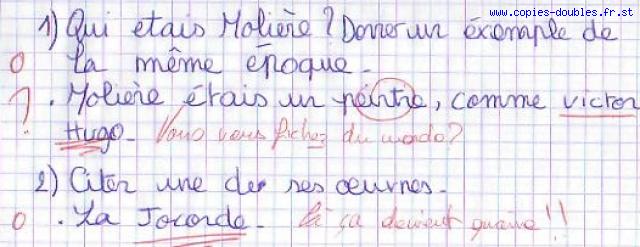 www.copies-doubles.fr.st
1) Qui etais Molière ? Donner un exemple de
0 la même époque.
? . Molière étais un peintre, comme victor
Hugo. Vous vous fichez du monde ?
2) Citer une de ses oeuvres.
0 . La Joconde. là ça devient grave !!